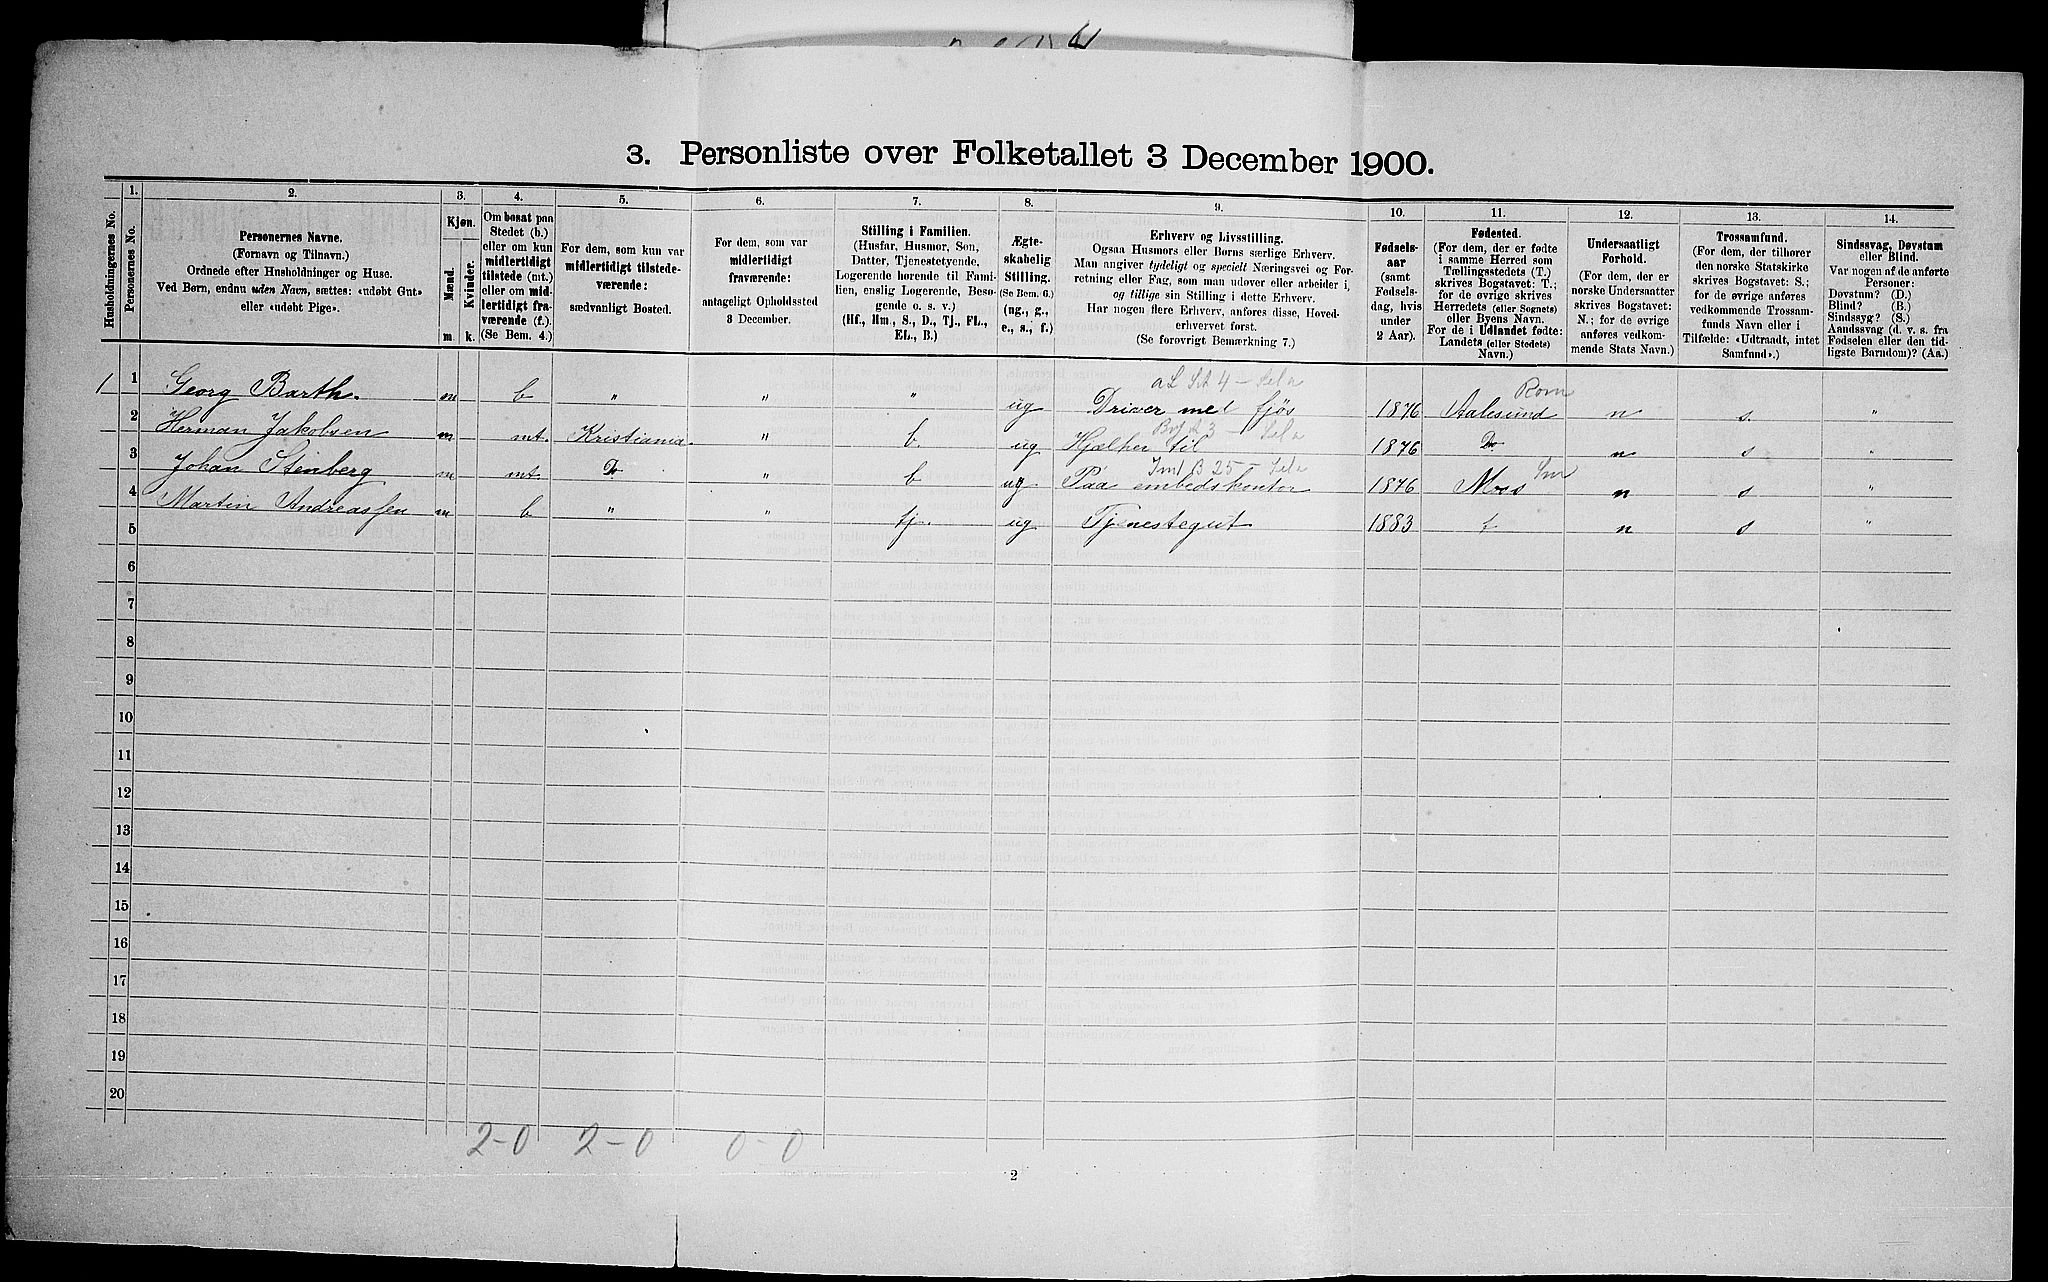 3. Personliste over Folketallet 3 December 1900.
Husholdningernes No.
1.
Personernes No.
2.
Personernes Navne.
(Fornavn og Tilnavn.)
Ordnede efter Husholdninger og Huse.
Ved Børn, endnu uden Navn, sættes: «udøbt Gut»
eller «udøbt Pige».
3.
Kjøn.
Mænd.
Kvinder.
m. k.
4.
Om bosat paa
Stedet (b.)
eller om kun
midlertidigt
tilstede (mt.)
eller om mid-
lertidigt fra-
værende (f.)
(Se Bem. 4.)
5.
For dem, som kun var
midlertidigt tilstede-
værende:
sædvanligt Bosted.
6.
For dem, som var
midlertidigt
fraværende:
antageligt Opholdssted
3 December.
7.
Stilling i Familien.
(Husfar, Husmor, Søn,
Datter, Tjenestetyende,
Logerende hørende til Fami-
lien, enslig Logerende, Besø-
gende o. s. v.)
(Hf., Hm., S., D., Tj., FL.,
EL., B.)
8.
Ægte-
skabelig
Stilling.
(Se Bem. 6.)
(ug., g.,
e., s., f.)
9.
Erhverv og Livsstilling.
Ogsaa Husmors eller Børns særlige Erhverv.
Man angiver tydeligt og specielt Næringsvei og For-
retning eller Fag, som man udover eller arbeider i,
og tillige sin Stilling i dette Erhverv.
Har nogen flere Erhverv, anføres disse, Hoved-
erhvervet først.
(Se forøvrigt Bemærkning 7.)
10.
Fødsels-
aar
(samt
Fødsels-
dag, hvis
under
2 Aar).
11.
Fødested.
(For dem, der er fødte
i samme Herred som
Tællingsstedets (T.)
skrives Bogstavet: T.;
for de øvrige skrives
Herredets (eller Sognets)
eller Byens Navn.
For de i Udlandet fødte:
Landets (eller Stedets)
Navn.)
12.
Undersaatligt
Forhold.
(For dem, der er
norske Undersaatter
skrives Bogstavet:
N.; for de øvrige
anføres vedkom-
mende Stats Navn.)
13.
Trossamfund.
(For dem, der tilhører
den norske Statskirke
skrives Bogstavet: S.;
for de øvrige anføres
vedkommende Trossam-
funds Navn eller i
Tilfælde: «Udtraadt, intet
Samfund».)
14.
Sindssvag, Døvstum
eller Blind.
Var nogen af de anførte
Personer:
Døvstum? (D.)
Blind? (B.)
Sindssyg? (S.)
Aandssvag (d. v. s. fra
Fødselen eller den tid-
ligste Barndom)? (Aa.)
1 1 Georg Barth. m b " " " ug Driver med fjøs 1876 Aalesund n s. "
2 Herman Jakobsen m mt. Kristiania. " b ug Hjælper til 1876 Do n s
3 Johan Stenberg m mt. Do " b ug Paa embedskontor 1876 Moss n s "
4 Martin Andreassen m b " " tj. ug Tjenestegut 1883 t n s "
5
6
7
8
9
10
11
12
13
14
15
16
17
18
19
20
2-0 2-0 0-0
2